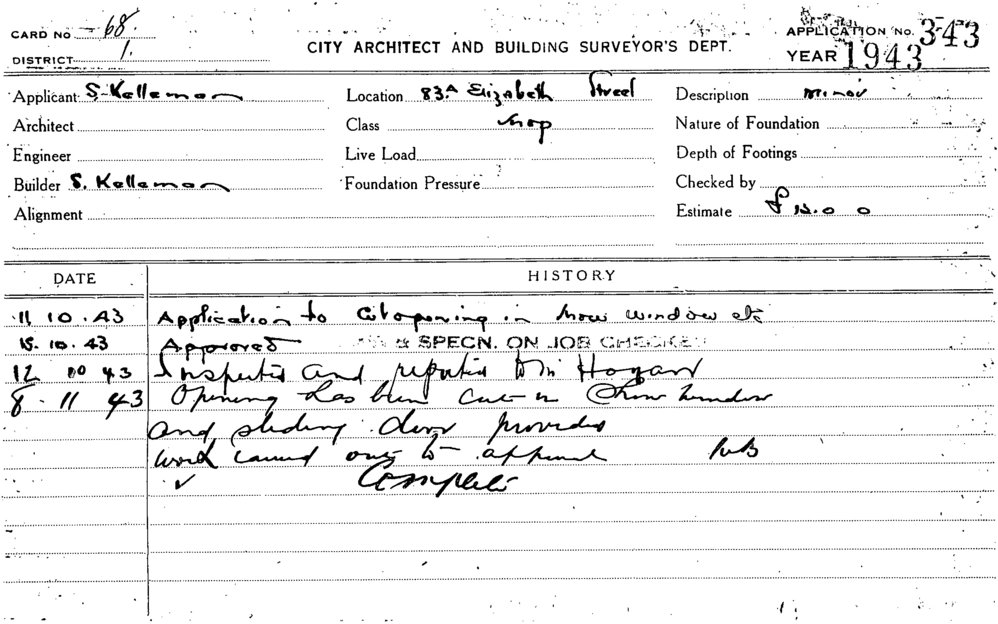 CARD NO 68.
DISTRICT 1.
CITY ARCHITECT AND BUILDING SURVEYOR'S DEPT.
APPLICATION No. 343
YEAR 1943
Applicant S. Kelleman
Location 83A Elizabeth Street
Description minor
Architect
Class Shop
Nature of Foundation
Engineer
Live Load
Depth of Footings
Builder S. Kelleman
Foundation Pressure
Checked by
Alignment
Estimate £ 15.0 0
DATE HISTORY
11 10 .43 Application to cut opening in show window etc
15. 10. 43 Approved & SPECN. ON JOB CHECKED
12 10 43 Inspected and reported to Mr Hogan
8 . 11 43 Opening has been cut in Show window
and sliding door provided
work carried out to approval
Complete